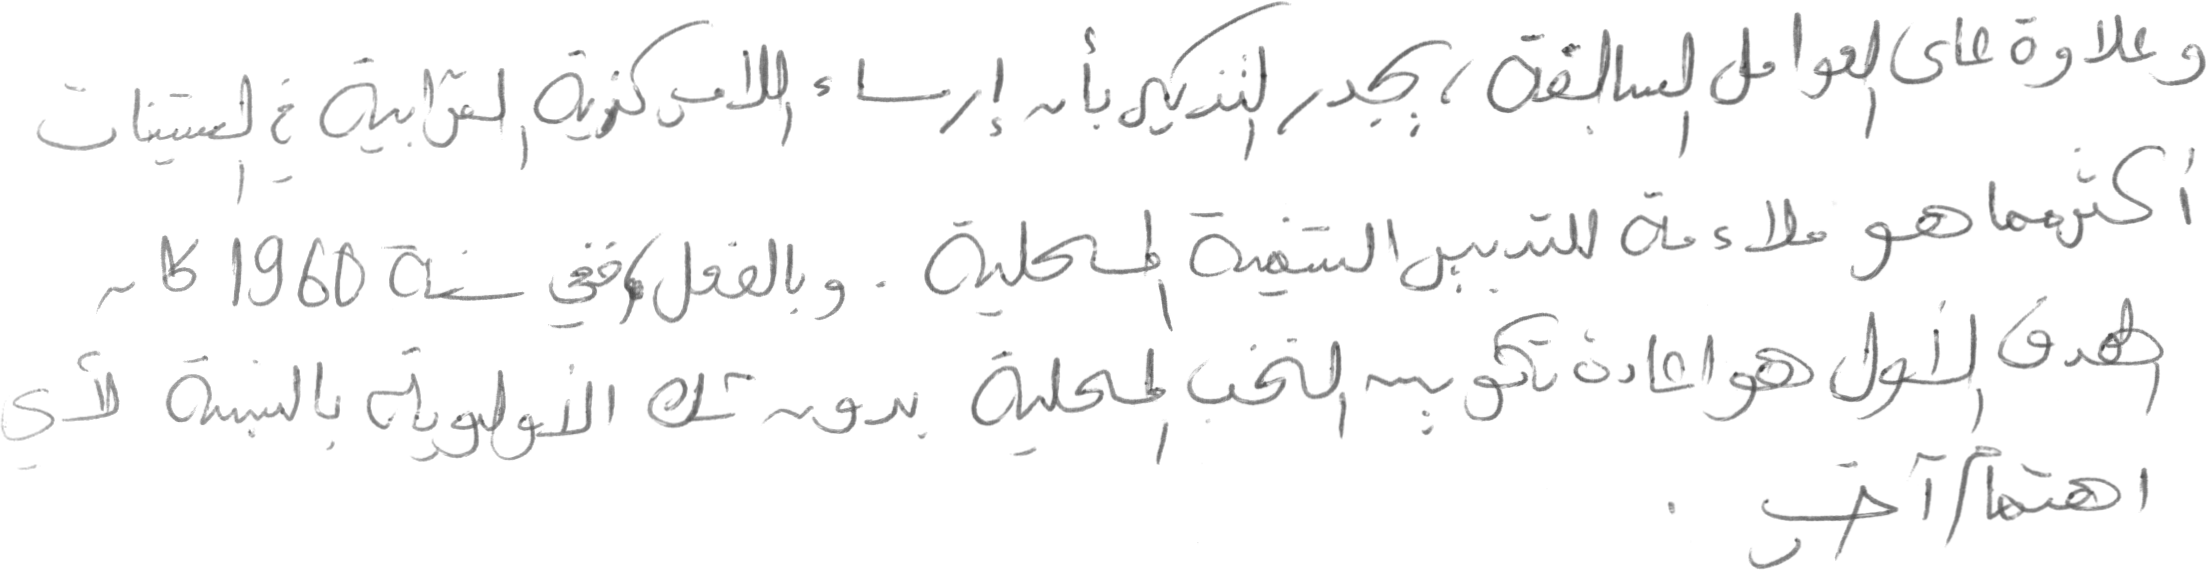 وعلاوة على العوامل السالفة، يجدر التذكير بأن إرساء اللامركزية الترابية في الستينات
أكثر مما هو ملاءمة للتدبير التنمية المحلية. وبالفعل، ففي سنة 1960 كان
الهدف الأول هو اعادة تكوين النخب المحلية بدون تلك الأولوية بالنسبة لأي
اهتمام آخر.